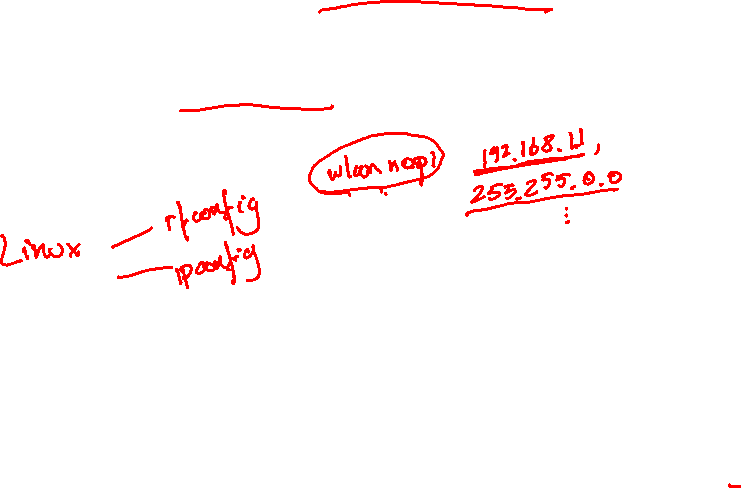 192.168.1.1,
255.255.0.0
Linux
ifconfig
ipconfig